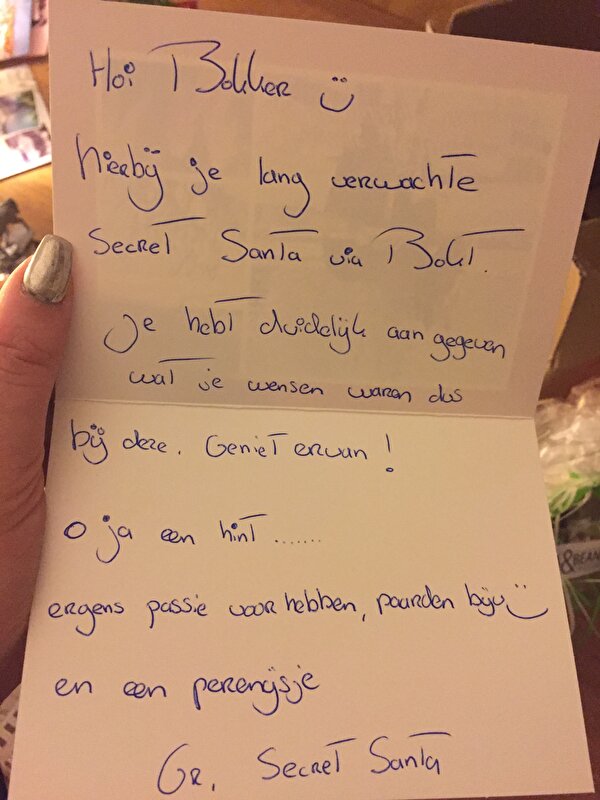 Hoi Bokker ü
hierbij je lang verwachte
Secret Santa via Bokt.
Je hebt duidelijk aan gegeven
wat je wensen waren dus
bij deze. Geniet ervan!
O ja een hint.......
ergens passie voor hebben, paarden bijv ü
en een perenijsje
Gr, Secret Santa
&BEAN